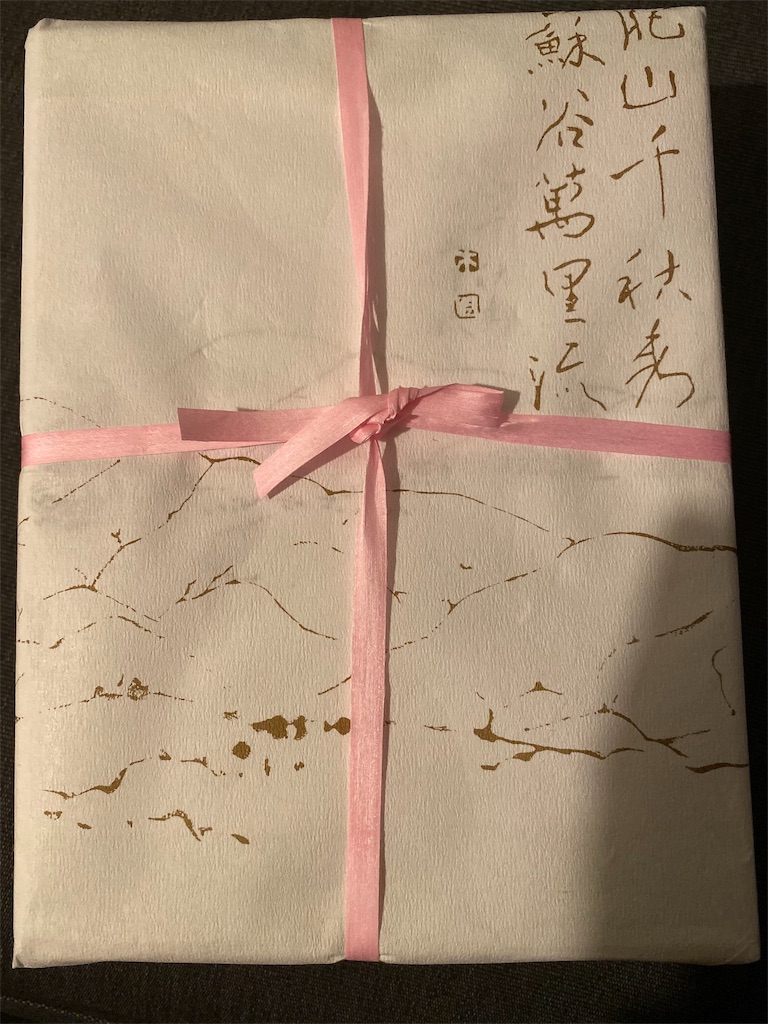 肥山千秋秀
蘇谷萬里流